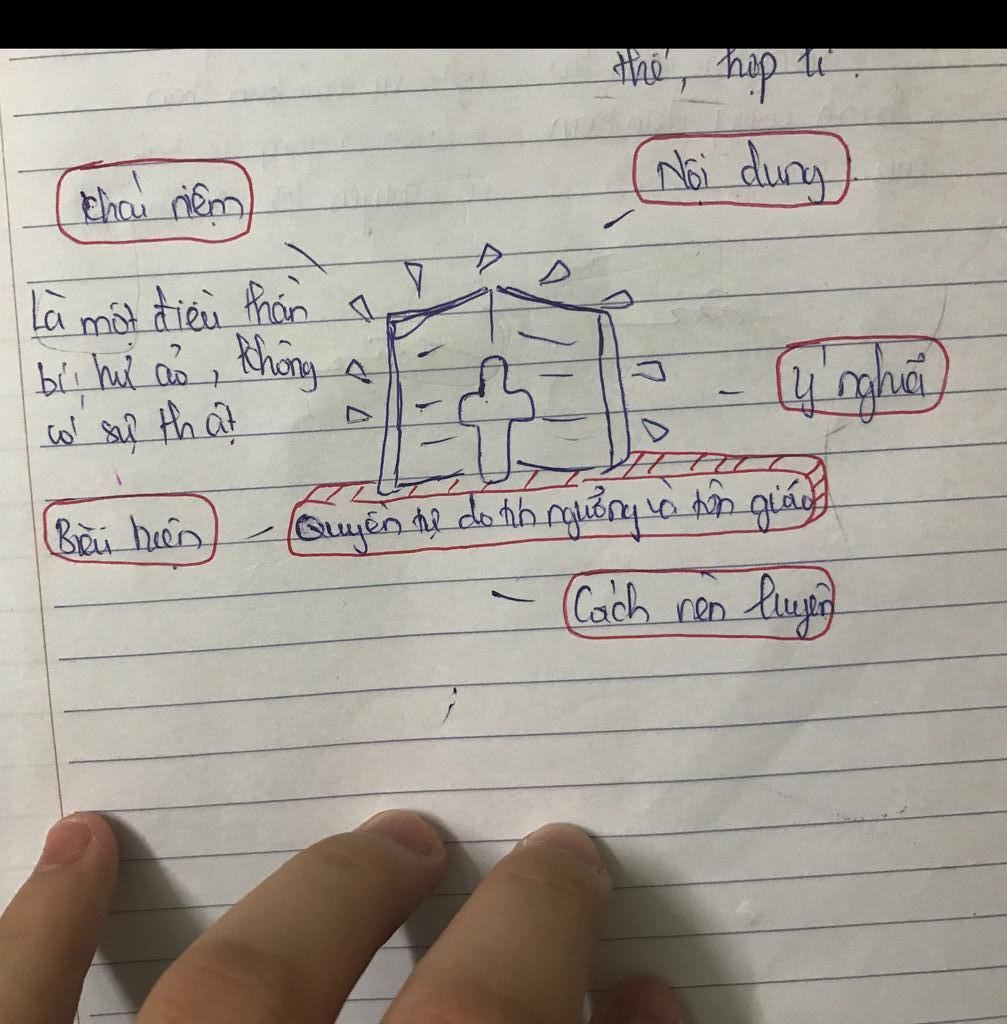 thể, hợp lí.
Khái niệm
Nội dung
Là một điều thần
bí, hư ảo, không
có sự thật
ý nghĩa
Biểu hiện
Quyền tự do tín ngưỡng và tôn giáo
Cách rèn luyện